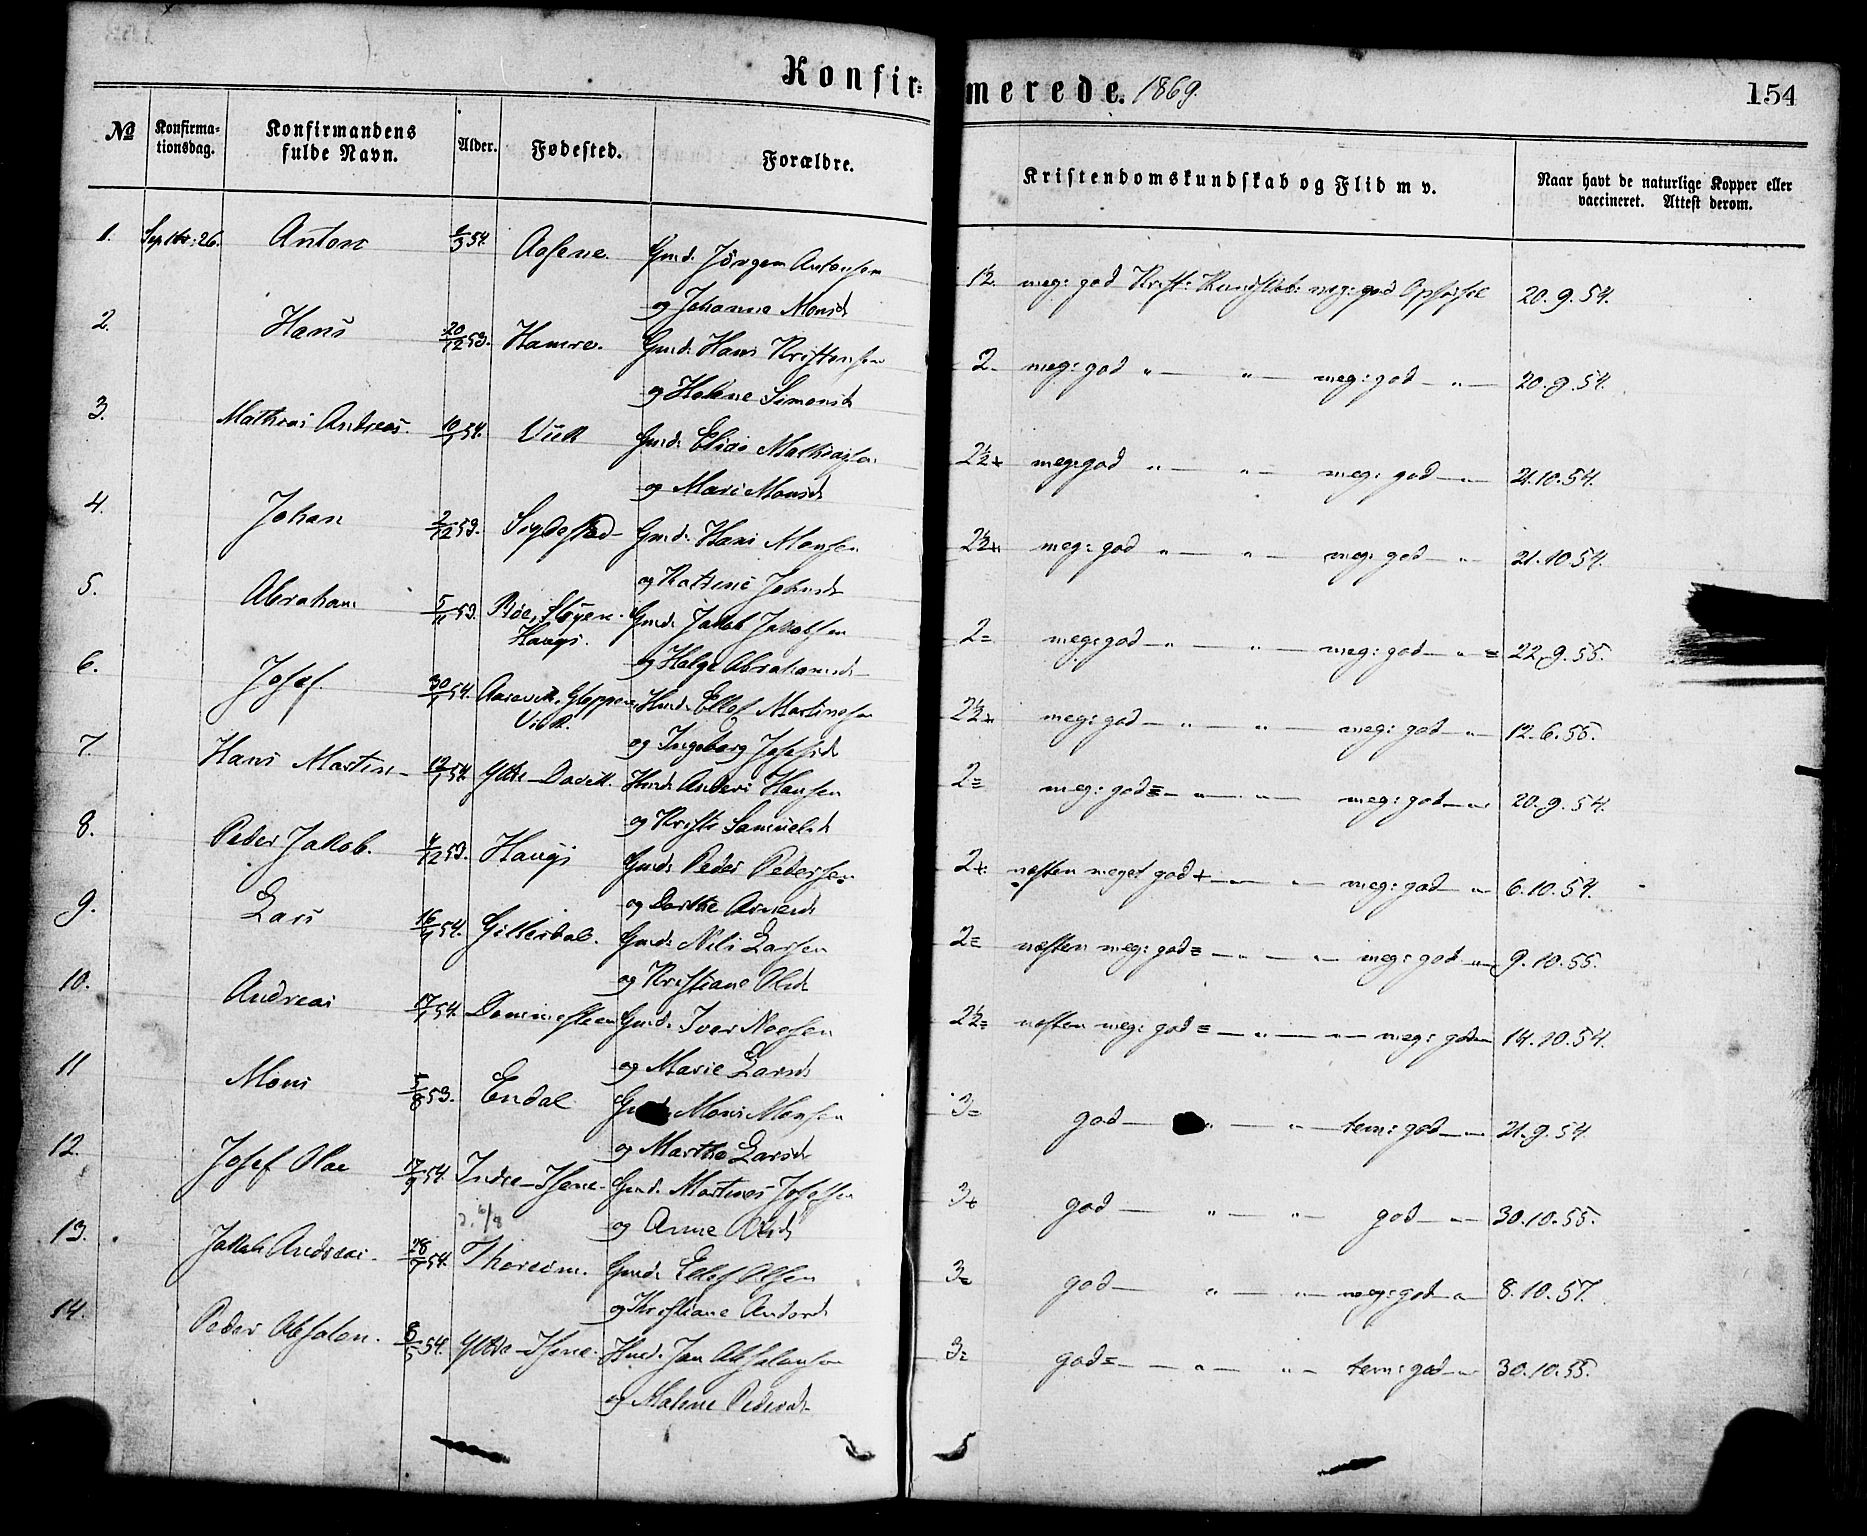 Konfir=merede. 1869. 154
No Konfirmationsdag. Konfirmandens fulde Navn. Alder. Fødested. Forældre. Kristendomskundskab og Flid m v. Naar havt de naturlige Kopper eller vaccineret. Attest derom.
1. Septbr: 26. Anton 54. Aasene. Gmd. Jörgen Antonsen
og Johanne Monsd. meg: god Krist: Kundskab: meg: god Opførsel 20.9.54.
2. Hans 20/12 53. Hamre. Gmd. Hans Kristensen
og Helene Simonsd. 2 meg: god " — " — meg: god — " — 20.9.54.
3. Mathias Andreas. 10/1 54. Viik Gmd. Elias Mathiassen
og Mari Monsd. 2½+ meg: god " — " — meg: god — " — 21.10.54.
4. Johan 2/12 53. Sigdestad Gmd. Hans Monsen
og Katrine Johnsd. 2½+ meg: god " — " — meg: god — " 21.10.54.
5. Abraham 5/11 53. Böe, Støyen Haugs. Gmd. Jakob Jakobsen
og Helge Abrahamsd. 2= meg: god — " — " — meg: god — " = 22.9.55.
6. Josef. 30/1 54. Aarevik, Gloppen Hmd. Ellef Martinsen
og Ingeborg Josefsd. 2½+ meg: god — " — " — meg: god — " — 12.6.55.
7. Hans Martin 12/1 54. Ytre-Davik. Hmd. Anders Hansen
og Kristi Samuelsd. 2= meg: god= — " — " — meg: god — " 20.9.54.
8. Peder Jakob. 4/12 53. Haugs Gmd. Peder Pedersen
og Dorthe Arnesd. 2+ næsten meget god+ — " — meg: god — " 6.10.54.
9. Lars 16/1 54. Gilleidal. Gmd. Nils Larsen
og Kristiane Olsd. 2= næsten meg: god= — " — " — meg: god — " 9.10.55.
10. Andreas 17/1 54. Dommesteen Gmd. Iver Noesen
og Marie Larsd. 2½= næsten meg: god= — " — " — meg: god — 14.10.54.
11 Mons 5/8 53. Endal Gmd. Mons Monsen
og Marthe Larsd. 3= god — " — " — tem: god — " 21.9.54
12. Josef Olae 17/9 54. Indre-Hjene Gmd. Martines Josefsen
og Anne Olsd. 3+ god — " — " — god — " — 30.10.55.
13. Jakob Andreas 28/7 54. Thoreim. Gmd. Ellef Olsen
og Kristiane Andersd. 3= god — " — " — meg: god — " 8.10.57.
14. Peder Absalon. 8/5 54. Ytre-Hjene. Hmd. Jan Absalonsen
og Malene Pedersd. 3= god= — " — " — tem: god — " 30.10.55.